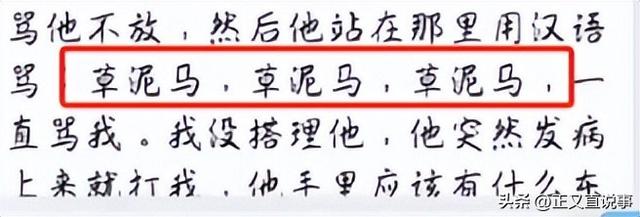 骂他不放，然后他站在那里用汉语
骂，草泥马，草泥马，草泥马，一
直骂我。我没搭理他，他突然发病
上来就打我，他手里应该有什么东
头条 @正义直说事